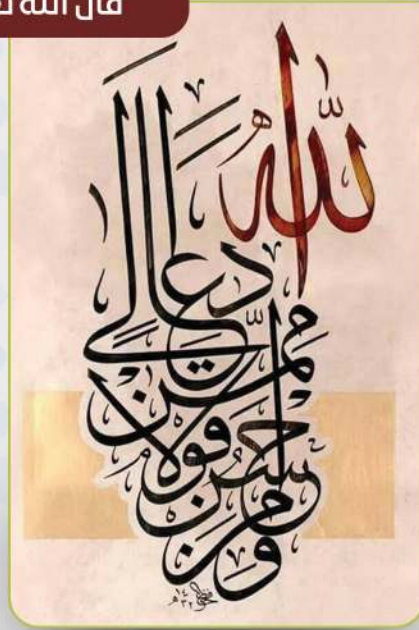 قال الله
ومن أحسن قولا ممن دعا إلى الله